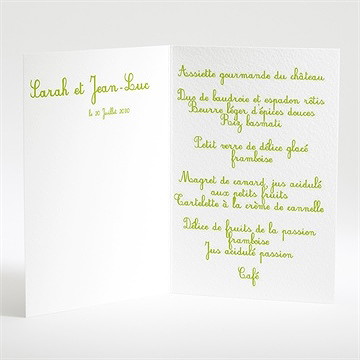 Sarah et Jean-Luc
le 20 Juillet 2020
Assiette gourmande du château
Duo de baudroie et espadon rôtis
Beurre léger d'épices douces
Riz basmati
Petit verre de délice glacé
framboise
Magret de canard, jus acidulé
aux petits fruits
Cartelette à la crème de cannelle
Délice de fruits de la passion
framboise
Jus acidulé passion
Café